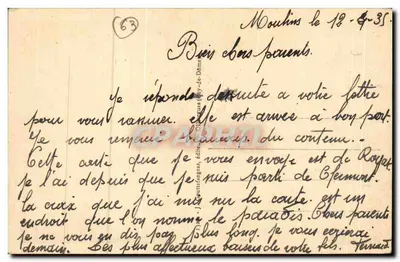 63
Moulins le 12-2-35
Bien chers parents.
Je réponds de suite a votre lettre
pour vous rassurer. elle est arrivée a bon port.
Je vous remercie beaucoup du contenu.
Cette carte que je vous envoye est de Royat
je l'ai depuis que je suis parti de Clermont.
la croix que j'ai mis sur la carte est un
endroit que l'on nomme le paradis. Chers parents
je ne vous en dis pas plus long je vous ecrirai
demain. Les plus affectueux baisers de votre fils. Fernand